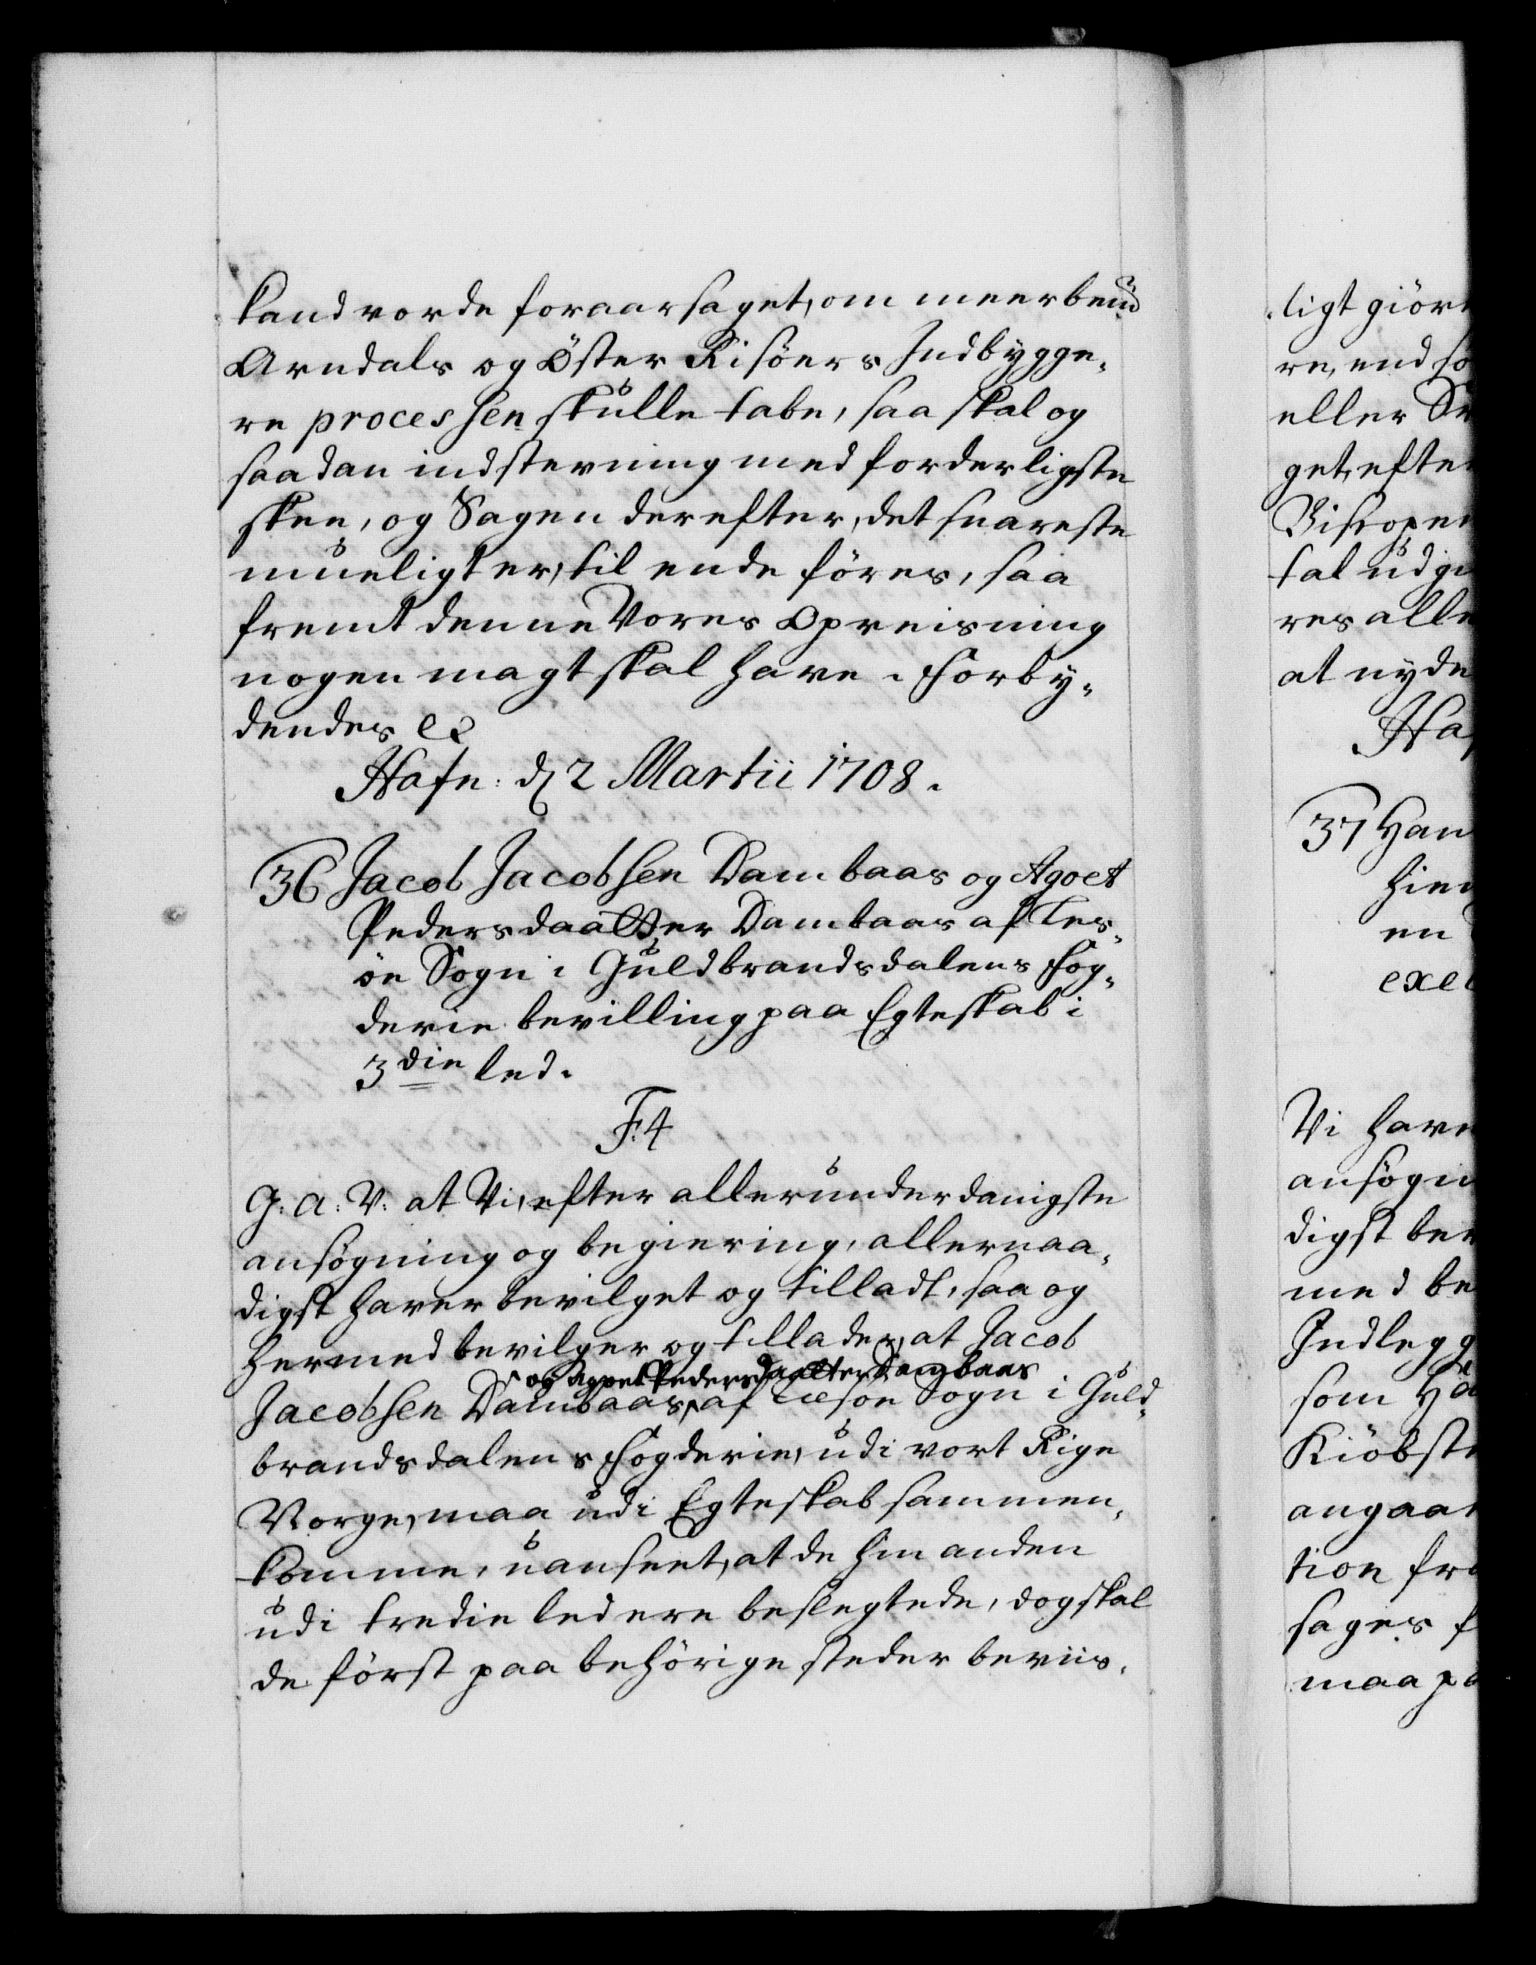 kand vorde foraarsaget, om meerbem.te
Arndals og Öster Risöers Indbygge-
re processen skulle tabe, saa skal og
saadan indstevning med forderligste
skee, og Sagen derefter, det snareste
mueligt er, til ende föres, saa
fremt denne Vores Opreisning
nogen magt skal have. Forby-
dendes ec
Hafn: d 2 Martii 1708.
36 Jacob Jacobsen Dambaas og Agoet
Pedersdaatter Dambaas af Les-
öe Sogn i Guldbrandsdalens Fog-
derie bevilling paa Egteskab i
3die led.
F: 4
G: A: V: at Vi, efter allerunderdanigste
ansögning og begiering, allernaa-
digst haver bevilget og tilladt, saa og
hermed bevilger og tillader, at Jacob
og Agoet Pedersdaatter Dambaas
Jacobsen Dambaas, af Lesöe Sogn i Guld-
brandsdalens Fogderie, udi vort Rige
Norge, maa udi Egteskab sammen-
komme, uanseet, at de hin anden
udi tredie led ere beslegtede, dog skal
de först paa behörige steder beviis-
ligt giör
re, end so
eller
get, efter
Biskopen
tal udgi
res alle
at nyde
Haf
37 Han
hien
en
exe
Vi have
ansögn
digst bev
med be
Indlegg
som
Kiöbste
angaae
tion fra
sages f
maa pa